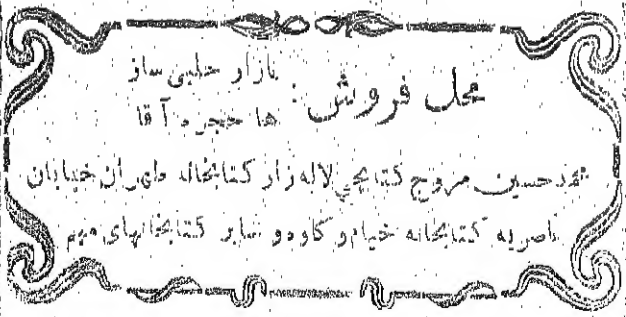 محل فروش: بازار حلبی ساز
ها حجره آقا
محمدحسین مروج کتابچی لاله زار کتابخانه طهران خیابان
ناصریه کتابخانه خیام و کاوه و سایر کتابخانهای مهم